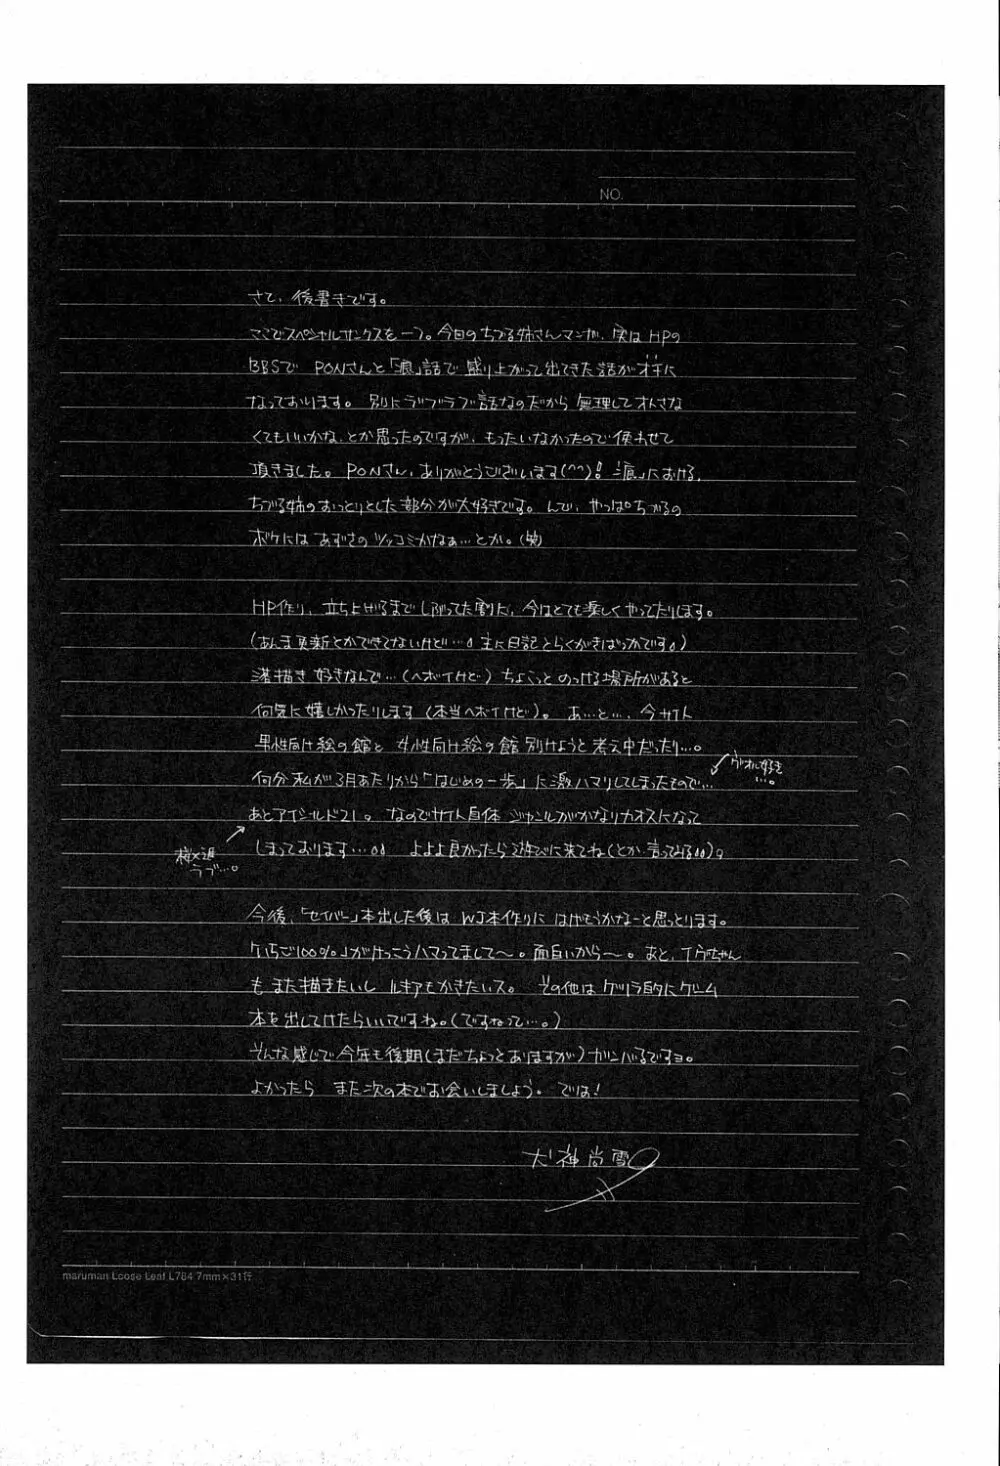 NO.
さて、後書きです。
ここでスペシャルサンクスを一つ。今回のちづる姉さんマンガ、実はHPの
BBSで PONさんと「痕」話で盛り上がって出てきた話がオチに
なっております。別にラブラブ話なのだから無理してオトさな
くてもいいかな、とか思ったのですが、もったいなかったので使わせて
頂きました。PONさん、ありがとうございます(^^)!「痕」における、
ちづる姉のおっとりとした部分が大好きです。んで、やっぱちづるの
ボケにはあずさのツッコミかなぁ…とか。(笑)
HP作り、立ち上げるまでしぶってた割に、今はとても楽しくやってたりします。
(あんま更新とかできてないけど…。主に日記とらくがきばっかです。)
落描き好きなんで…(ヘボイけど)ちょこっとのっける場所があると
何気に嬉しかったりします(本当ヘボイけど)。あ…と…、今サイト
男性向け絵の館と女性向け絵の館別けようと考え中だったり…。
何分私が3月あたりから「はじめの一歩」に激ハマリしてしまったもので…
あとアイシールド21。なのでサイト自体ジャンルがかなりカオスになって
しまっております…。よよよ良かったら遊びに来てね(とか言ってみる)。
ラブ…。
今後、「セイバー」本出した後はWJ本作りにはげもうかなーと思っとります。
「いちご100%」がけっこうハマってまして〜。面白いから〜。あと、イヴちゃん
もまた描きたいし ルキアもかきたいス。その他はゲリラ的にゲーム
本を出してけたらいいですね。(ですねって…。)
そんな感じで今年も後期(まだちょっとありますが)ガンバるですョ。
よかったら また次の本でお会いしましょう。では!
犬神尚雪
maruman Loose Leaf L784 7mm×31行